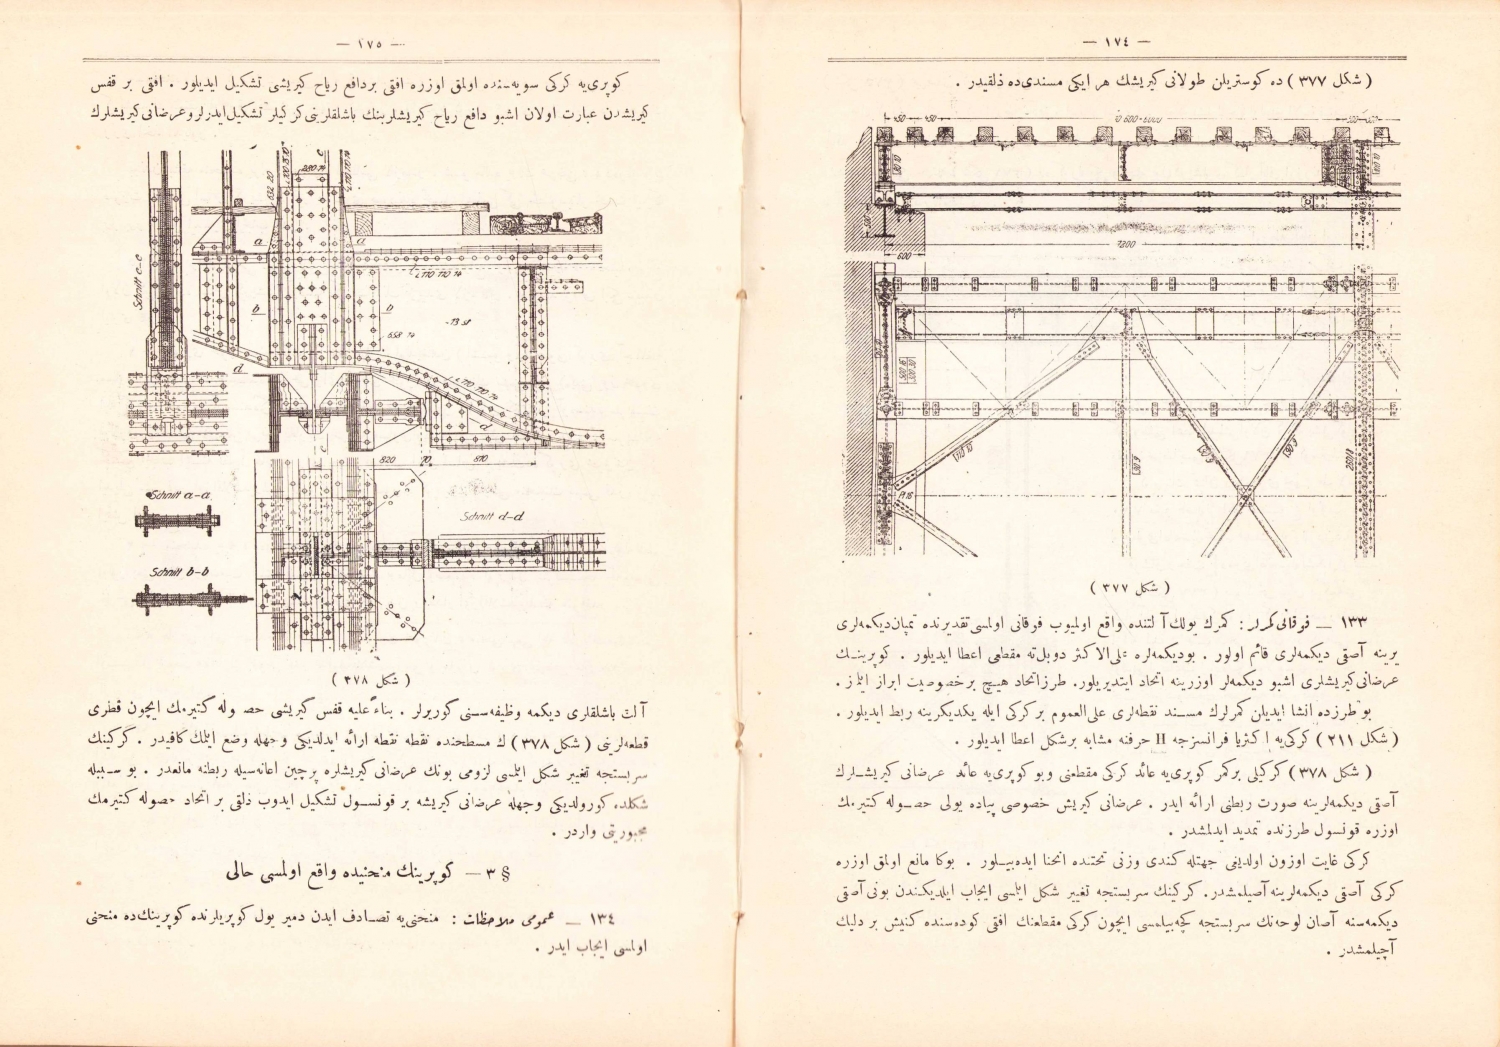 — ١٧٤ —
( شكل ٣٧٧ ) ده كوستريلن طولانى كيريشك هر ايكى مسندى ده ذلقيدر .
450
450
600
7200
Pl.16
( شكل ٣٧٧ )
١٣٣ — فوقانى كمرلر : كمرك يولك آلتنده واقع اولميوب فوقانى اولمسى تقديرنده تمپان ديكمه لرى
يرينه آصقى ديكمه لرى قائم اولور . بوديكمه لره على الاكثر دوبل ته مقطعى اعطا ايديلور . كوپرينك
عرضانى كيريشلرى اشبو ديكمه لر اوزرينه اتحاد ايتديريلور . طرز اتحاد هيچ بر خصوصيت ابراز ايلمز .
بو طرزده انشا ايديلن كمرلرك مسند نقطه لرى على العموم بر كركى ايله يكديكرينه ربط ايديلور .
( شكل ٢١١ ) كركى يه اكثريا فرانسزجه II حرفنه مشابه بر شكل اعطا ايديلور .
( شكل ٣٧٨ ) كركيلى بر كمر كوپرى يه عائد كركى مقطعنى وبو كوپرى يه عائد عرضانى كيريشلرك
آصقى ديكمه لرينه صورت ربطنى ارائه ايدر . عرضانى كيريش خصوصى پياده يولى حصوله كتيرمك
اوزره قونسول طرزنده تمديد ايدلمشدر .
كركى غايت اوزون اولديغى جهتله كندى وزنى تحتنده انحنا ايده بيلور . بوكا مانع اولمق اوزره
كركى آصقى ديكمه لرينه آصيلمشدر . كركينك سربستجه تغيير شكل ايلمسى ايجاب ايلديكندن بونى آصقى
ديكمه سنه آصان لوحه نك سربستجه كچه بيلمسى ايچون كركى مقطعنك افقى كوده سنده كنيش بر دليك
آچيلمشدر .
— ١٧٥ —
كوپرى يه كركى سويه سنده اولمق اوزره افقى بر دافع رياح كيريشى تشكيل ايديلور . افقى بر قفس
كيريشدن عبارت اولان اشبو دافع رياح كيريشلرينك باشلقلرينى كركيلر تشكيل ايدرلر وعرضانى كيريشلرك
Schnitt c-c
a
a
b
b
d
d
820
90
810
Schnitt a-a
Schnitt b-b
Schnitt d-d
( شكل ٣٧٨ )
آلت باشلقلرى ديكمه وظيفه سنى كوريرلر . بناءً عليه قفس كيريشى حصوله كتيرمك ايچون قطرى
قطعه لرينى ( شكل ٣٧٨ ) ك مسطحنده نقطه نقطه ارائه ايدلديكى وجهله وضع ايلمك كافيدر . كركينك
سربستجه تغيير شكل ايلمسى لزومى بونك عرضانى كيريشلره پرچين اعانه سيله ربطنه مانعدر . بو سببله
شكلده كورولديكى وجهله عرضانى كيريشه بر قونسول تشكيل ايدوب ذلقى بر اتحاد حصوله كتيرمك
مجبوريتى واردر .
§ ٣ — كوپرينك منحنيده واقع اولمسى حالى
١٣٤ — عمومى ملاحظات : منحنى يه تصادف ايدن دمير يول كوپريلرنده كوپرينك ده منحنى
اولمسى ايجاب ايدر .